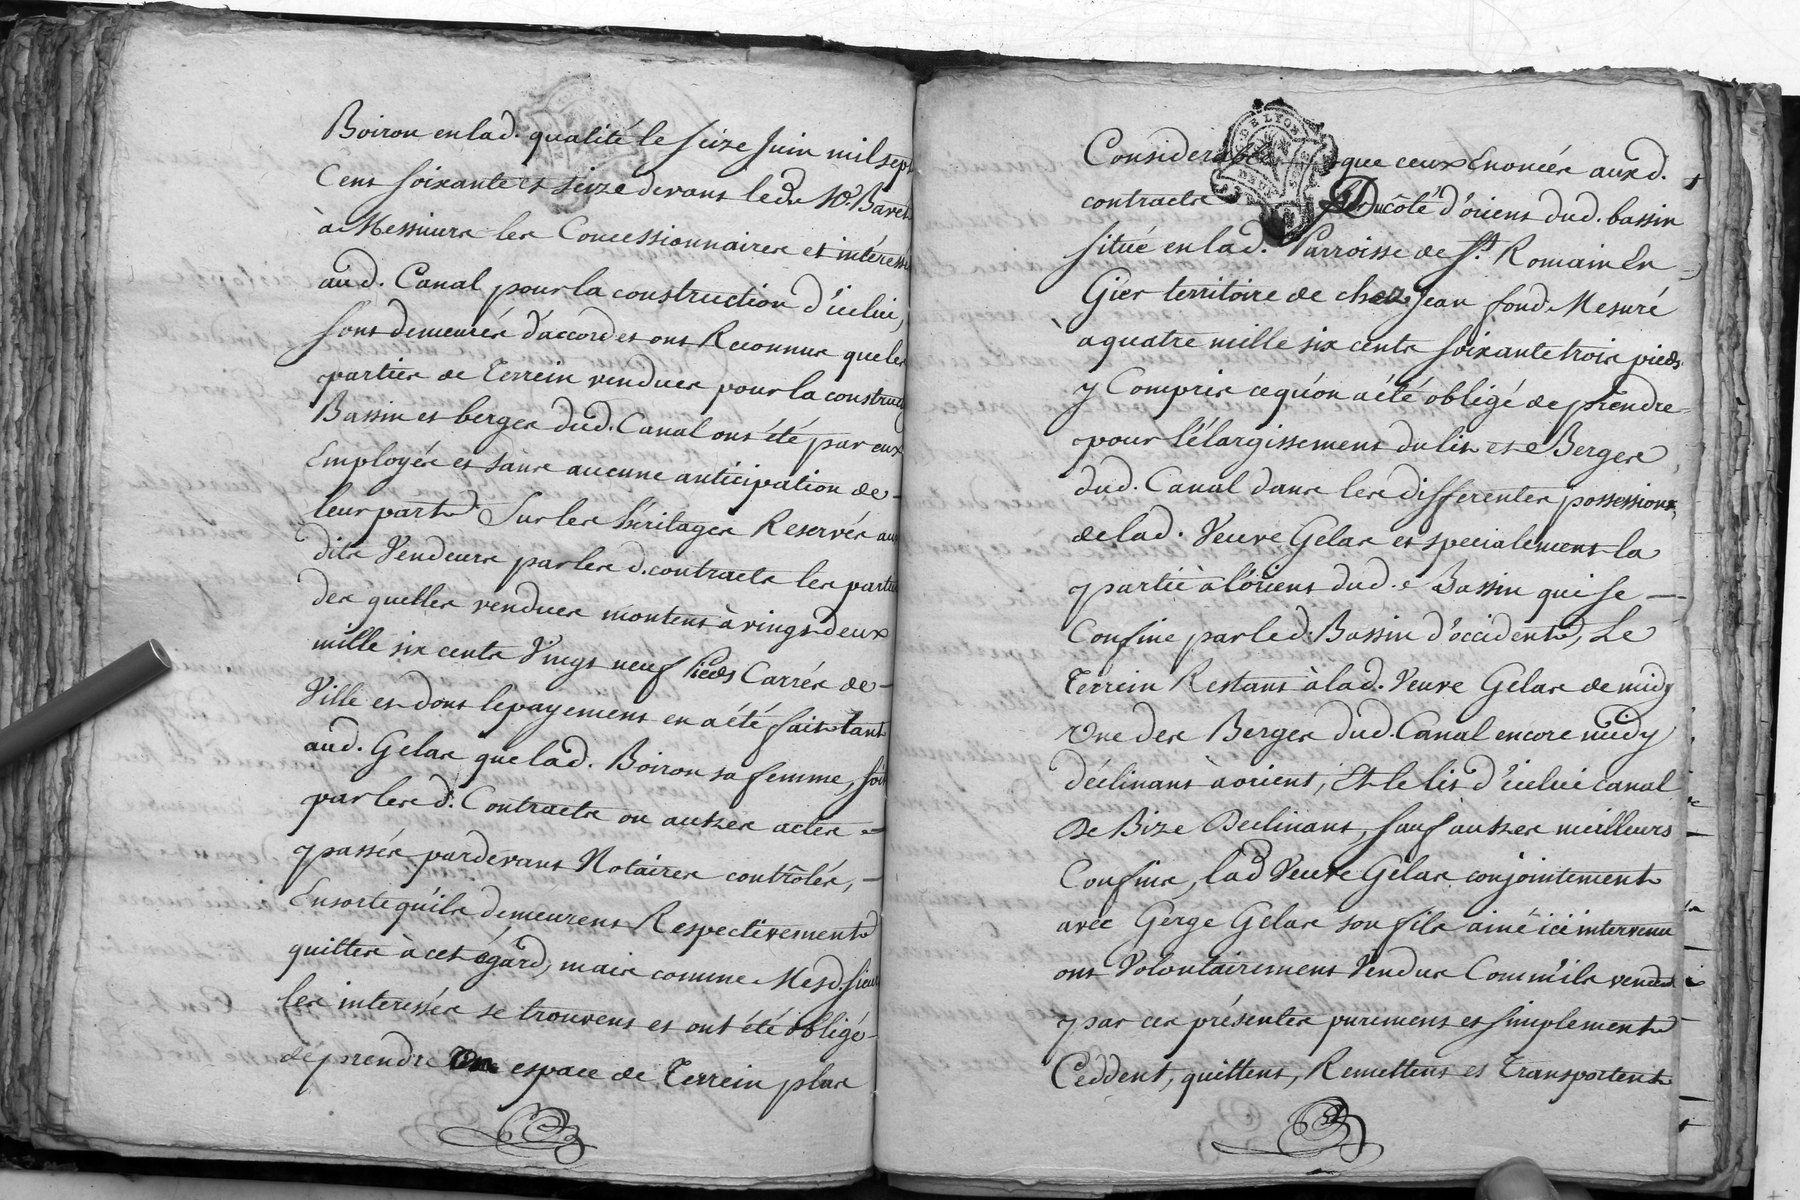 Boiron en lad. qualité le seize Juin mil sept
Cent soixante et seize devant led. Me. Baret
à Messieurs les Concessionnaires et intéressés
aud. Canal pour la construction d'icelui,
sont demeurés d'accord et ont Reconnus que les
parties de Terrein vendues pour la construction
Bassin et berges dud. Canal ont été par eux
Employées et sans aucune anticipation de
leur part Sur les héritages Reservés aux
dits Vendeurs par les d. contracts les parties
des quelles vendues montent à vingt deux
mille six cents Vingt neuf Pieds Carrés de
Ville et dont le payement en a été fait tant
aud. Gelas que lad. Boiron sa femme, soit
par les d. Contracts ou autres actes
passés pardevant Notaires contrôlés,
Ensorte qu'ils demeurent Respectivement
quittes à cet égard, mais comme Mesd. sieurs
les interessés se trouvent et ont été obligé
de prendre un espace de Terrein plus
DE LYON
DEUX
Considerable que ceux Enoncés auxd.
contracts Du côté d'orient dud. bassin
situé en lad. Parroisse de St. Romain En
Gier territoire de chez Jean fond Mesuré
à quatre mille six cents soixante trois pieds
y Compris ce qu'on a été obligé de prendre
pour l'élargissement du lit et Berges
dud. Canal dans les differentes possessions
de lad. Veuve Gelas et specialement la
partie à l'orient dud. Bassin qui se
Confine par led. Bassin d'occident, Le
Terrein Restant à lad. Veuve Gelas de midy
Une des Berges dud. Canal encore midy
déclinant à orient, Et le lit d'icelui canal
De Bize Declinant, sauf autres meilleurs
Confins, lad Veuve Gelas conjointement
avec Gerge Gelas son fils ainé ici intervenu
ont Volontairement Vendus Comm'ils vendent
par ces présentes purement et simplement
Ceddent, quittent, Remettent et Transportent